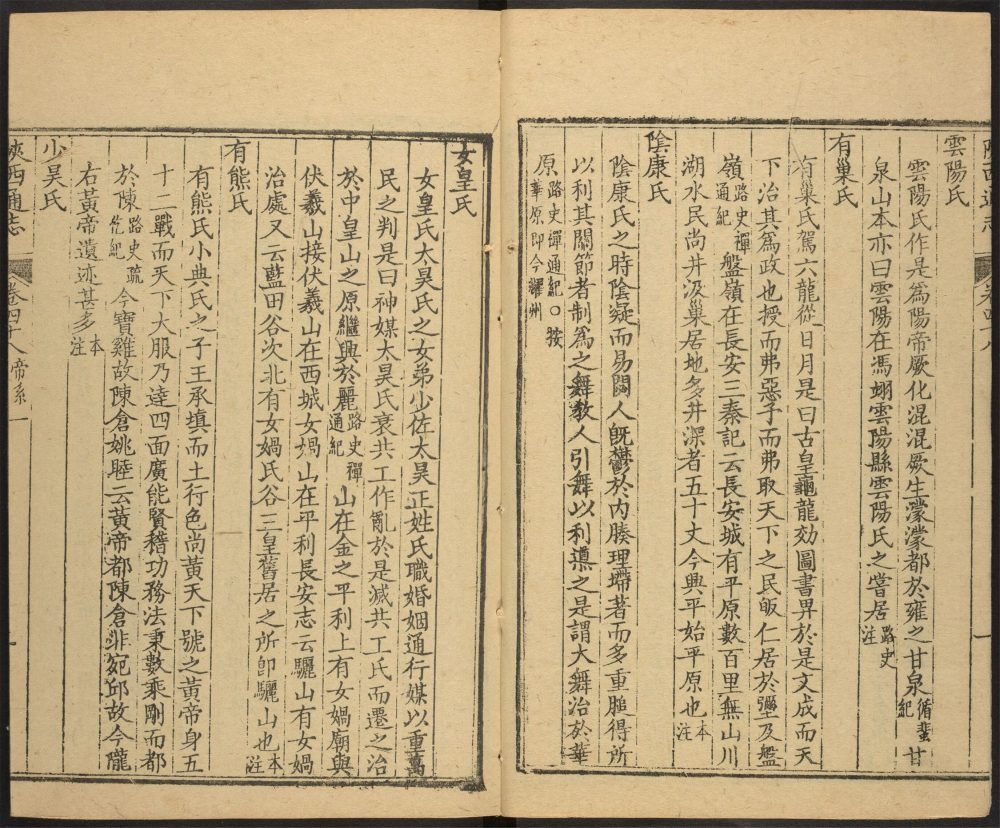 陝西通志
卷四十八
雲陽氏
雲陽氏作是爲陽帝厥化混混厥生濛濛都於雍之甘泉循蜚紀甘
泉山本亦曰雲陽在馮翊雲陽縣雲陽氏之嘗居路史注
有巢氏
有巢氏駕六龍從日月是曰古皇龜龍効圖書畀於是文成而天
下治其爲政也授而弗惡予而弗取天下之民皈仁居於彊及盤
嶺路史禪通紀盤嶺在長安三秦記云長安城有平原數百里無山川
湖水民尚井汲巢居地多井深者五十丈今興平始平原也本注
陰康氏
陰康氏之時陰凝而易閟人旣鬱於內腠理壔著而多重膇得所
以利其關節者制爲之舞教人引舞以利導之是謂大舞治於華
原路史禪通紀○按華原即今耀州
女皇氏
女皇氏太昊氏之女弟少佐太昊正姓氏職婚姻通行媒以重萬
民之判是曰神媒太昊氏衰共工作亂於是滅共工氏而遷之治
於中皇山之原繼興於麗路史禪通紀山在金之平利上有女媧廟與
伏羲山接伏羲山在西城女媧山在平利長安志云驪山有女媧
治處又云藍田谷次北有女媧氏谷三皇舊居之所卽驪山也本注
有熊氏
有熊氏小典氏之子王承填而土行色尚黃天下號之黃帝身五
十二戰而天下大服乃達四面廣能賢稽功務法秉數乘剛而都
於陳路史疏仡紀今寶雞故陳倉姚睦云黃帝都陳倉非宛邱故今隴
右黃帝遺迹甚多本注
少昊氏
陝西通志
卷四十八帝系一